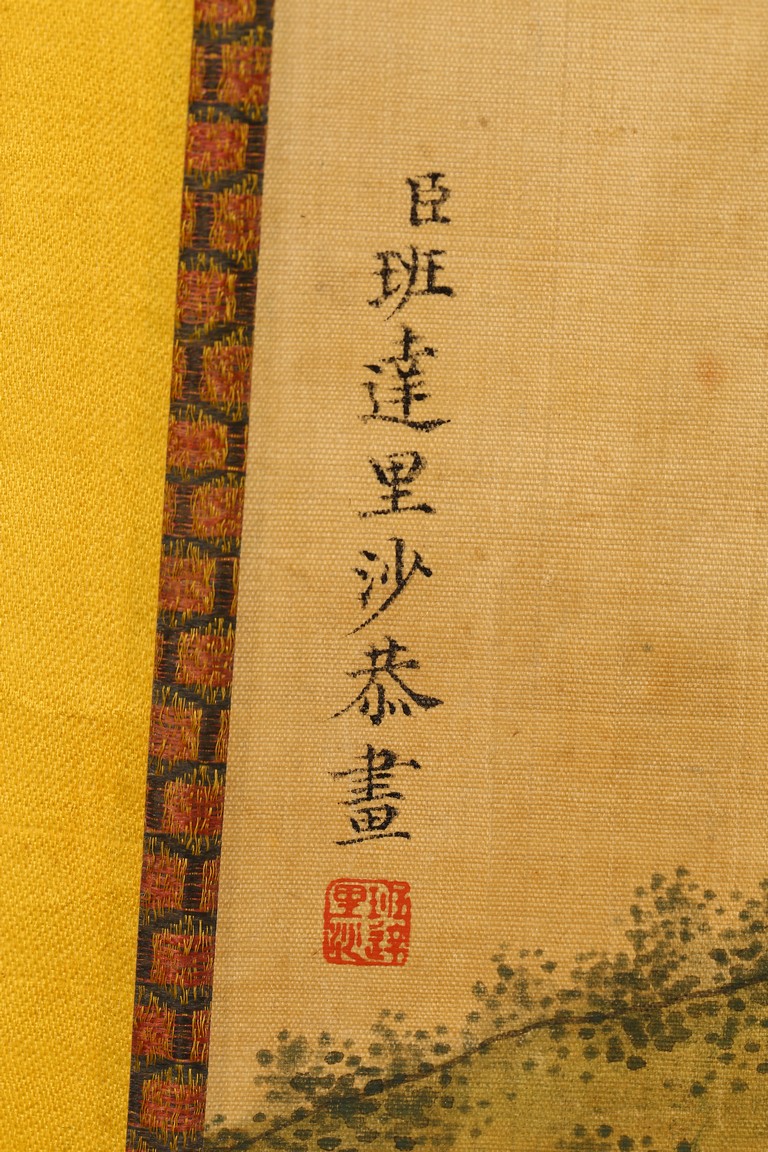 臣班達里沙恭畫
班達
里沙